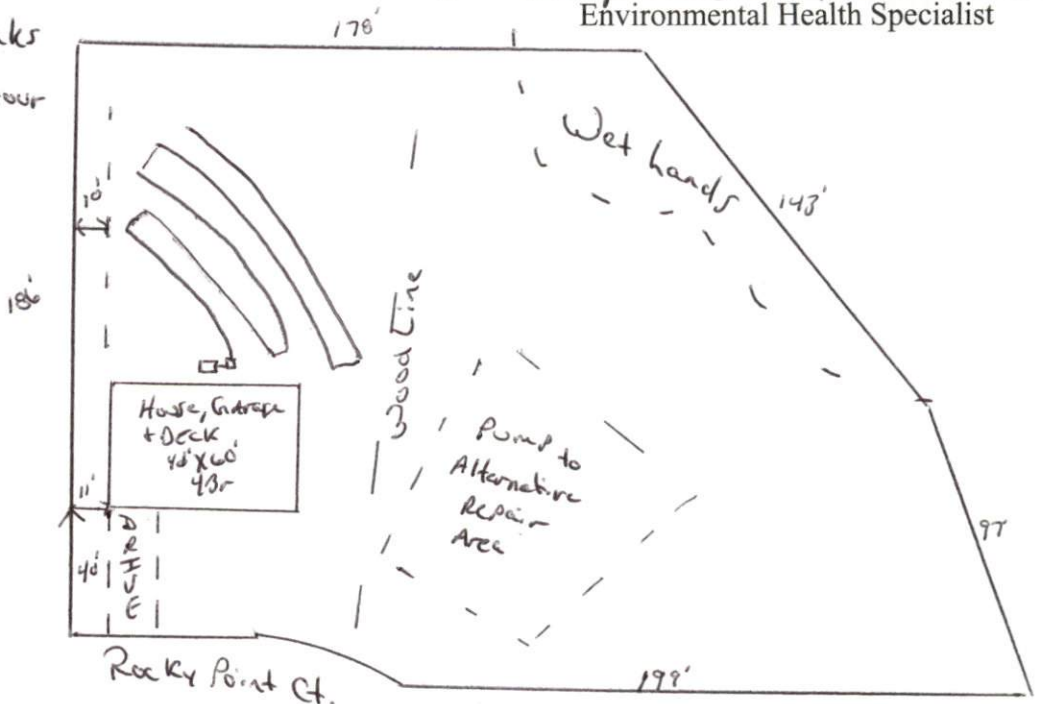 Environmental Health Specialist
178'
Wet lands
143'
10'
186'
Wood Line
House, Garage
+ DECK
40'X60'
4Br
Pump to
Alternative
Repair
Area
11'
40'
DRIVE
97'
Rocky Point Ct.
199'